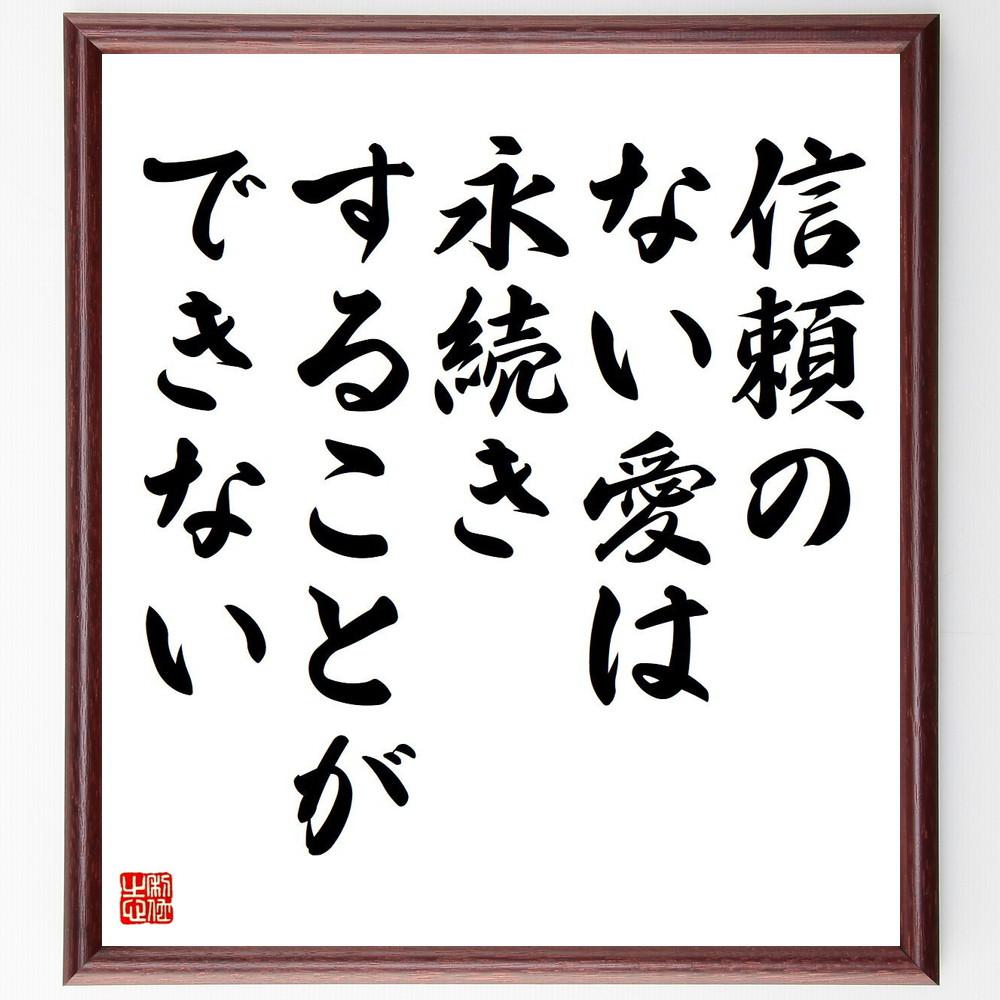 信頼の
ない愛は
永続き
することが
できない